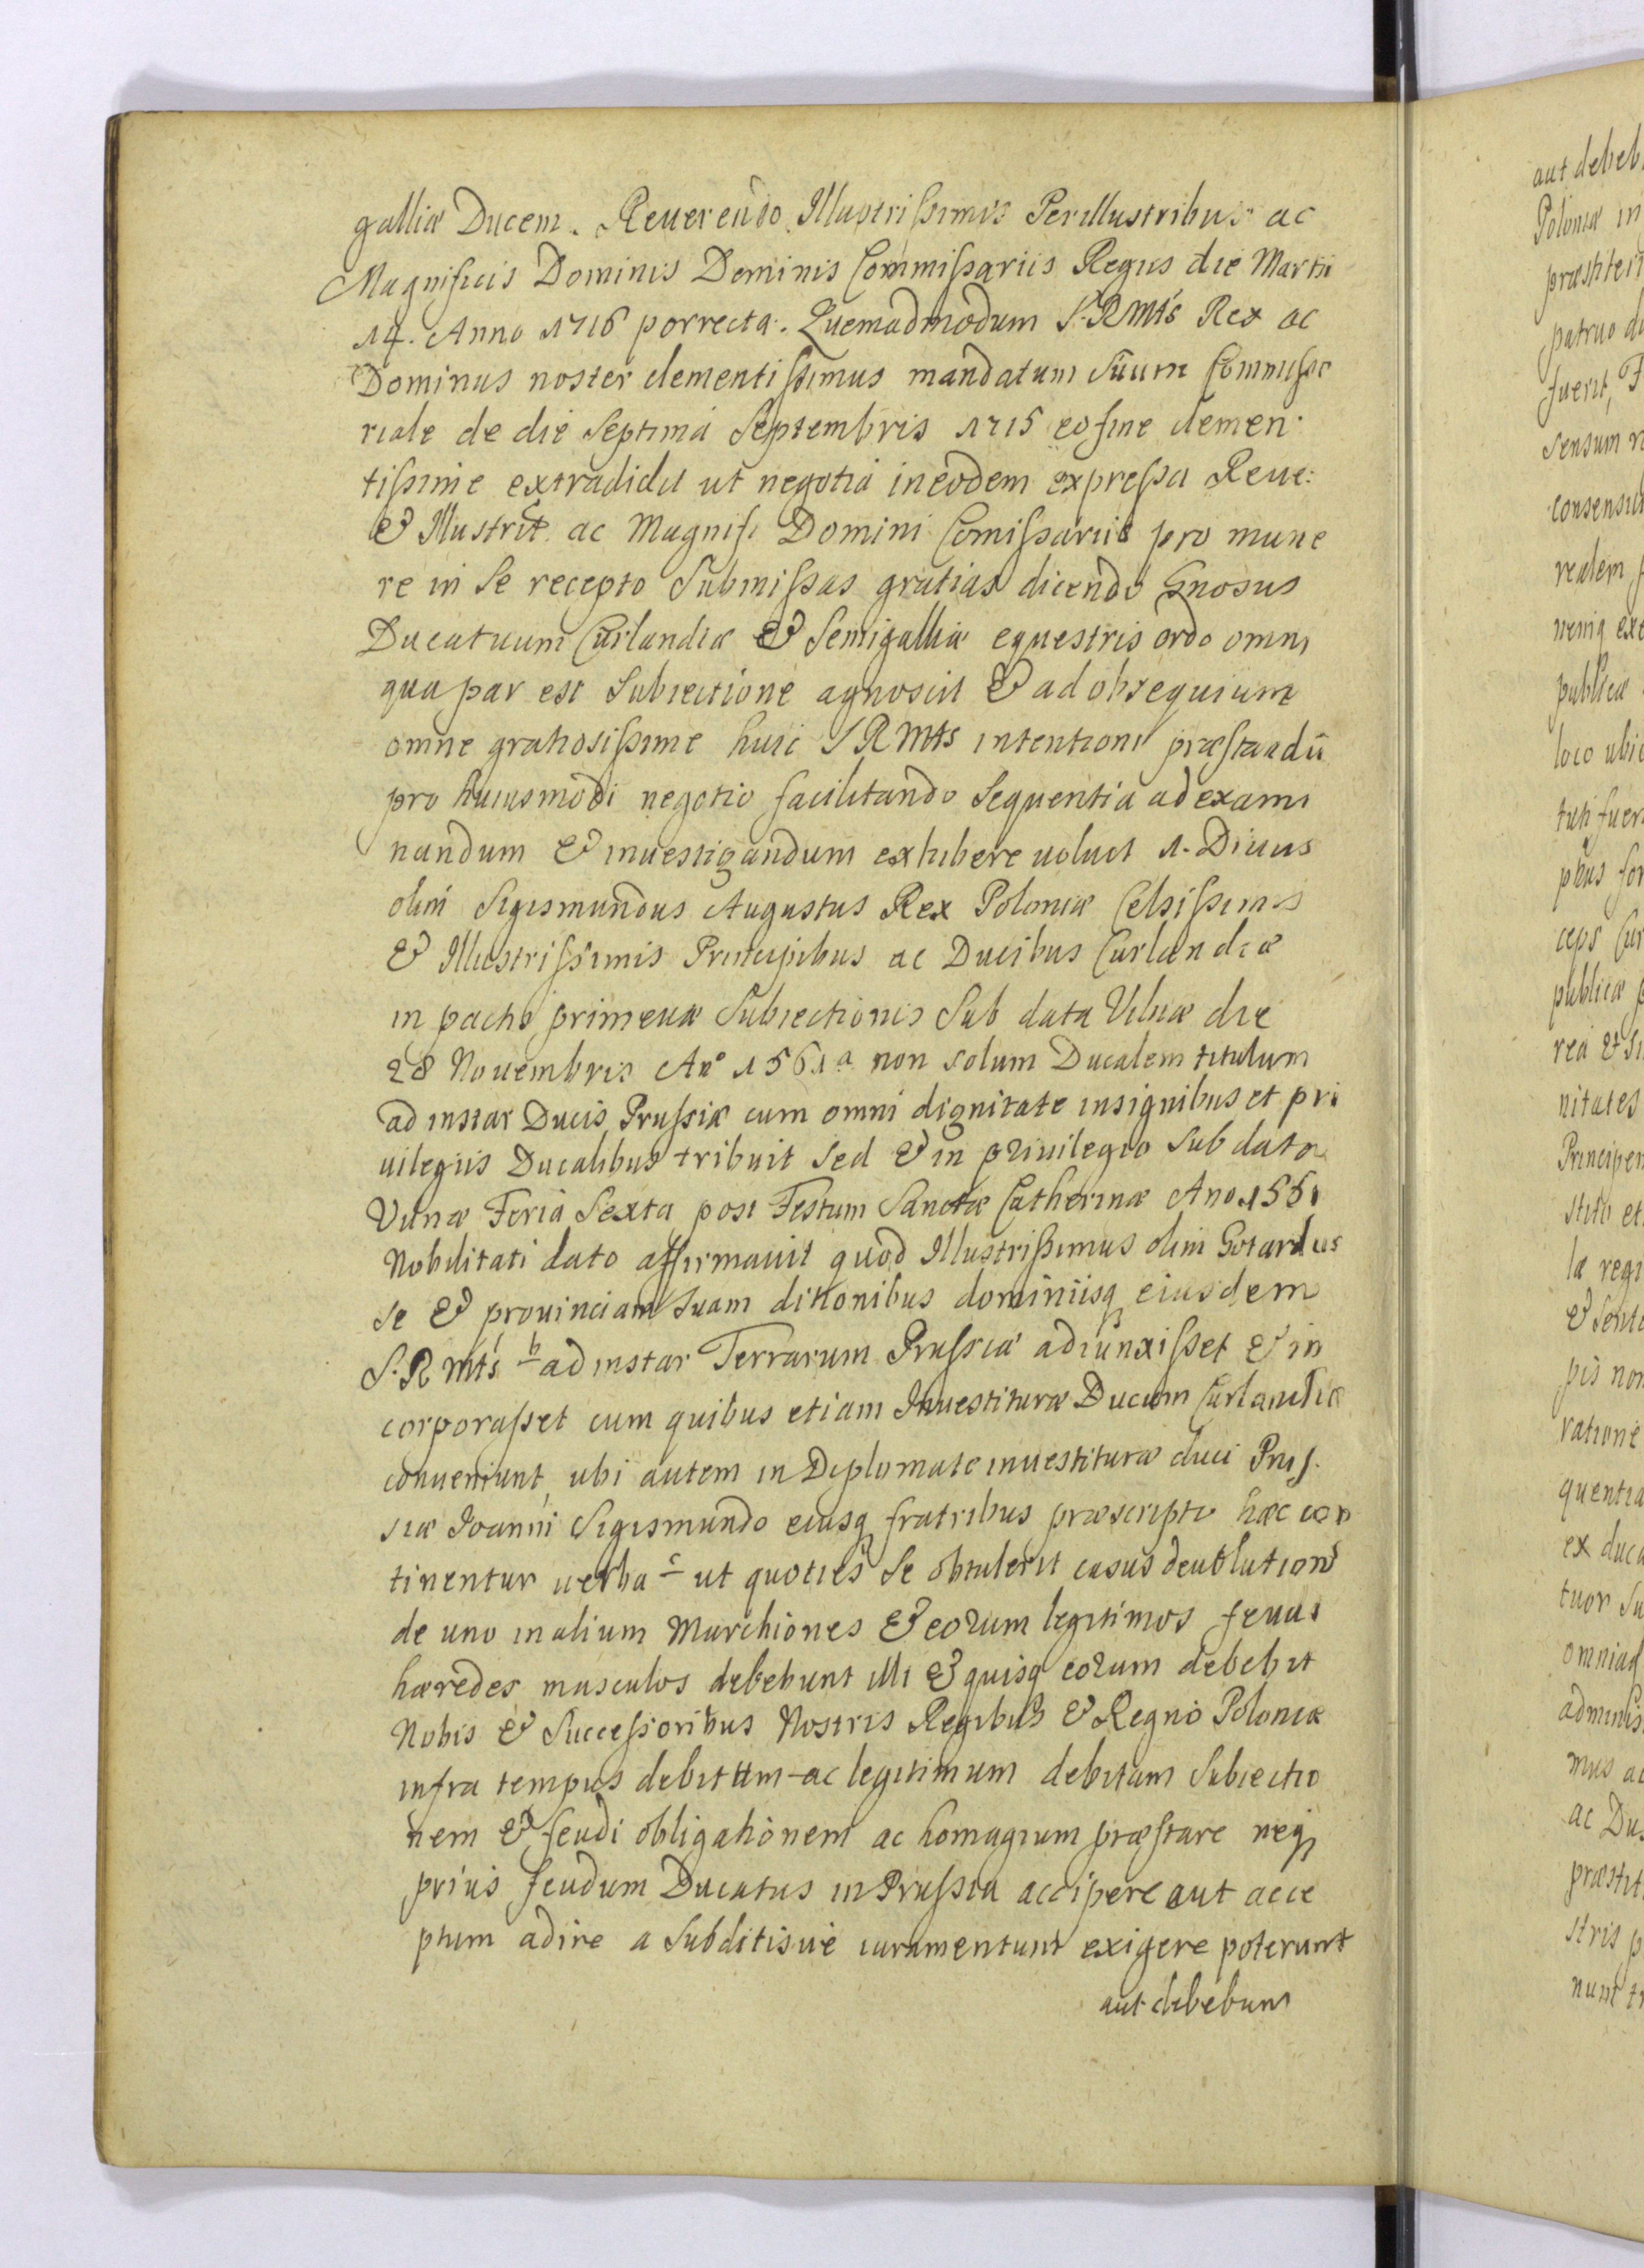 galliæ Ducem. Reuerendo Illustrissimis Perillustribus ac
Magnificis Dominis Dominis Commissariis Regiis die Martii
14. Anno 1716 porrecta. Quemadmodum S. R Mts Rex ac
Dominus noster clementissimus mandatum suum Commisso
riale de die Septima Septembris 1715 eo fine clemen
tissime extradidit ut negotia in eodem expressa Reue:
& Illustrit. ac Magnifi Domini Comissariis pro mune
re in se recepto Submissas gratias dicendo Gnosus
Ducatuum Curlandiæ & Semigalliæ equestris ordo omni
qua par est Subiectione agnoscit & ad obsequium
omne gratiosissime huic S R Mts intentioni præstandū
pro huiusmodi negotio facilitando Sequentia ad exami
nandum & inuestigandum exhibere uoluit 1. Diuus
olim Sigismundus Augustus Rex Poloniæ Celsissimis
& Illustrissimis Principibus ac Ducibus Curlandiæ
in pactis primeuæ Subiectionis Sub data Vilnæ die
28 Nouembris Ano 1561 a non solum Ducalem titulum
ad instar Ducis Prussiæ cum omni dignitate insignibus et pri
uilegiis Ducalibus tribuit Sed & in priuilegio Sub dato
Vilnæ Feria Sexta post Festum Sanctæ Catherinæ Ano 1551
Nobilitati dato affirmauit quod Illustrissimus olim Gotardus
se & prouinciam suam ditionibus dominiisq eiusdem
S. R Mts b ad instar Terrarum Prussiæ adiunxisset & in
corporasset cum quibus etiam Inuestituræ Ducum Curlandiæ
conueniunt, ubi autem in Diplomate inuestituræ duci Prus
siæ Joanni Sigismundo eiusq fratribus præscripto hæc con
tinentur uerba c ut quoties se obtulerit casus deuolutionis
de uno in alium Marchiones & eorum legitimos feuui
hæredes masculos debebunt illi & quisq eorum debebit
Nobis & Successoribus Nostris Regibus & Regno Poloniæ
infra tempus debitum ac legitimum debitam Subiectio
nem & feudi obligationem ac homagium præstare neq
prius feudum Ducatus in Prussia accipere aut acce
ptum adire a Subditisue iuramentum exigere poterunt
aut debebunt